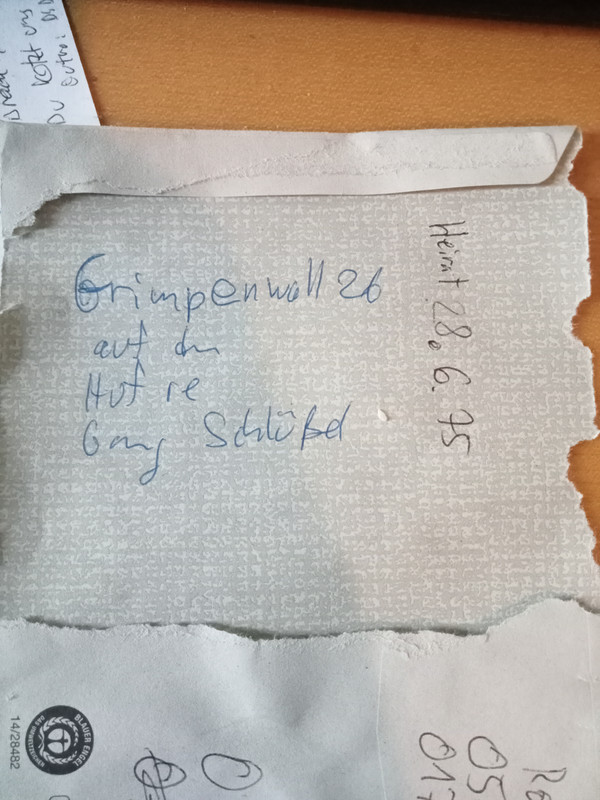 Grimpenwall 26
auf dm
Hof re
Gang Schlüßel
Heirat 28.6.75
Du kotzt uns
BLAUER ENGEL
14/28482
05
017